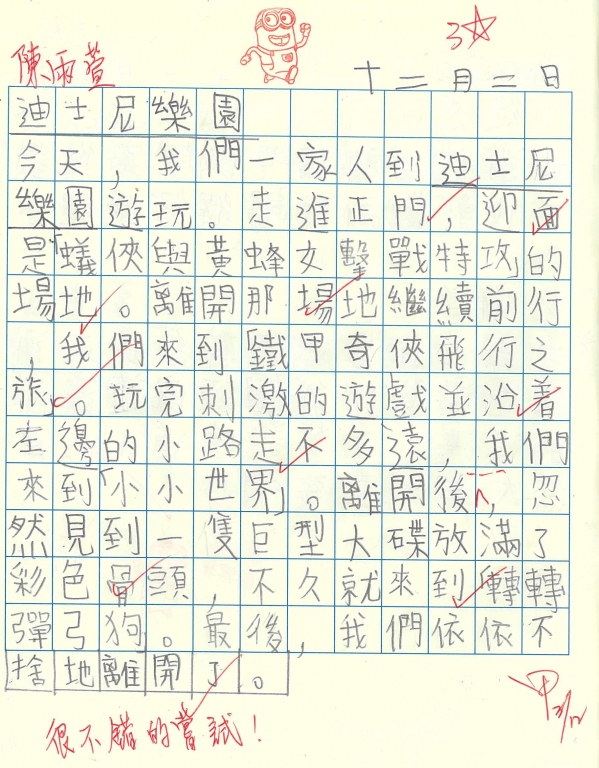 3☆
陳雨萱
十二月二日
迪士尼樂園
今天，我們一家人到迪士尼
樂園遊玩。走進正門，迎面
是「蟻俠與黃蜂女擊戰特攻」的
場地。離開那場地繼續前行
，我們來到「鐵甲奇俠飛行之
旅」。玩完刺激的遊戲並沿着
左邊的小路走不多遠，我們
來到「小小世界」。離開後，忽
然見到一隻巨型大碟放滿了
彩色骨頭，不久就來到轉轉
彈弓狗。最後，我們依依不
捨地離開了。
甲
很不錯的嘗試！